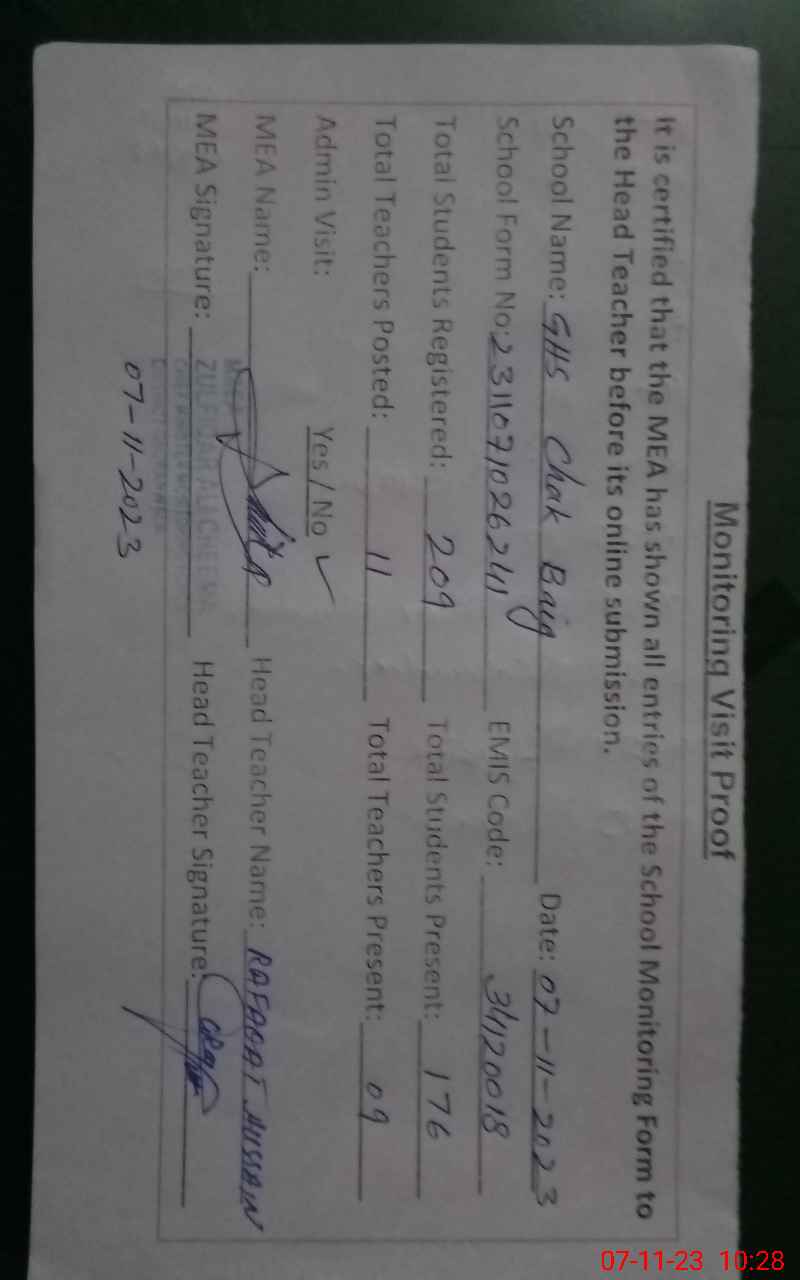 Monitoring Visit Proof
It is certified that the MEA has shown all entries of the School Monitoring Form to
the Head Teacher before its online submission.
School Name: GHS Chak Baig Date: 07-11-2023
School Form No: 2311071026241 EMIS Code: 34120018
Total Students Registered: 209 Total Students Present: 176
Total Teachers Posted: 11 Total Teachers Present: 09
Admin Visit: Yes / No ✓
MEA Name: Head Teacher Name: RAFAQAT HUSSAIN
MEA Signature: Head Teacher Signature:
07-11-2023
07-11-23 10:28